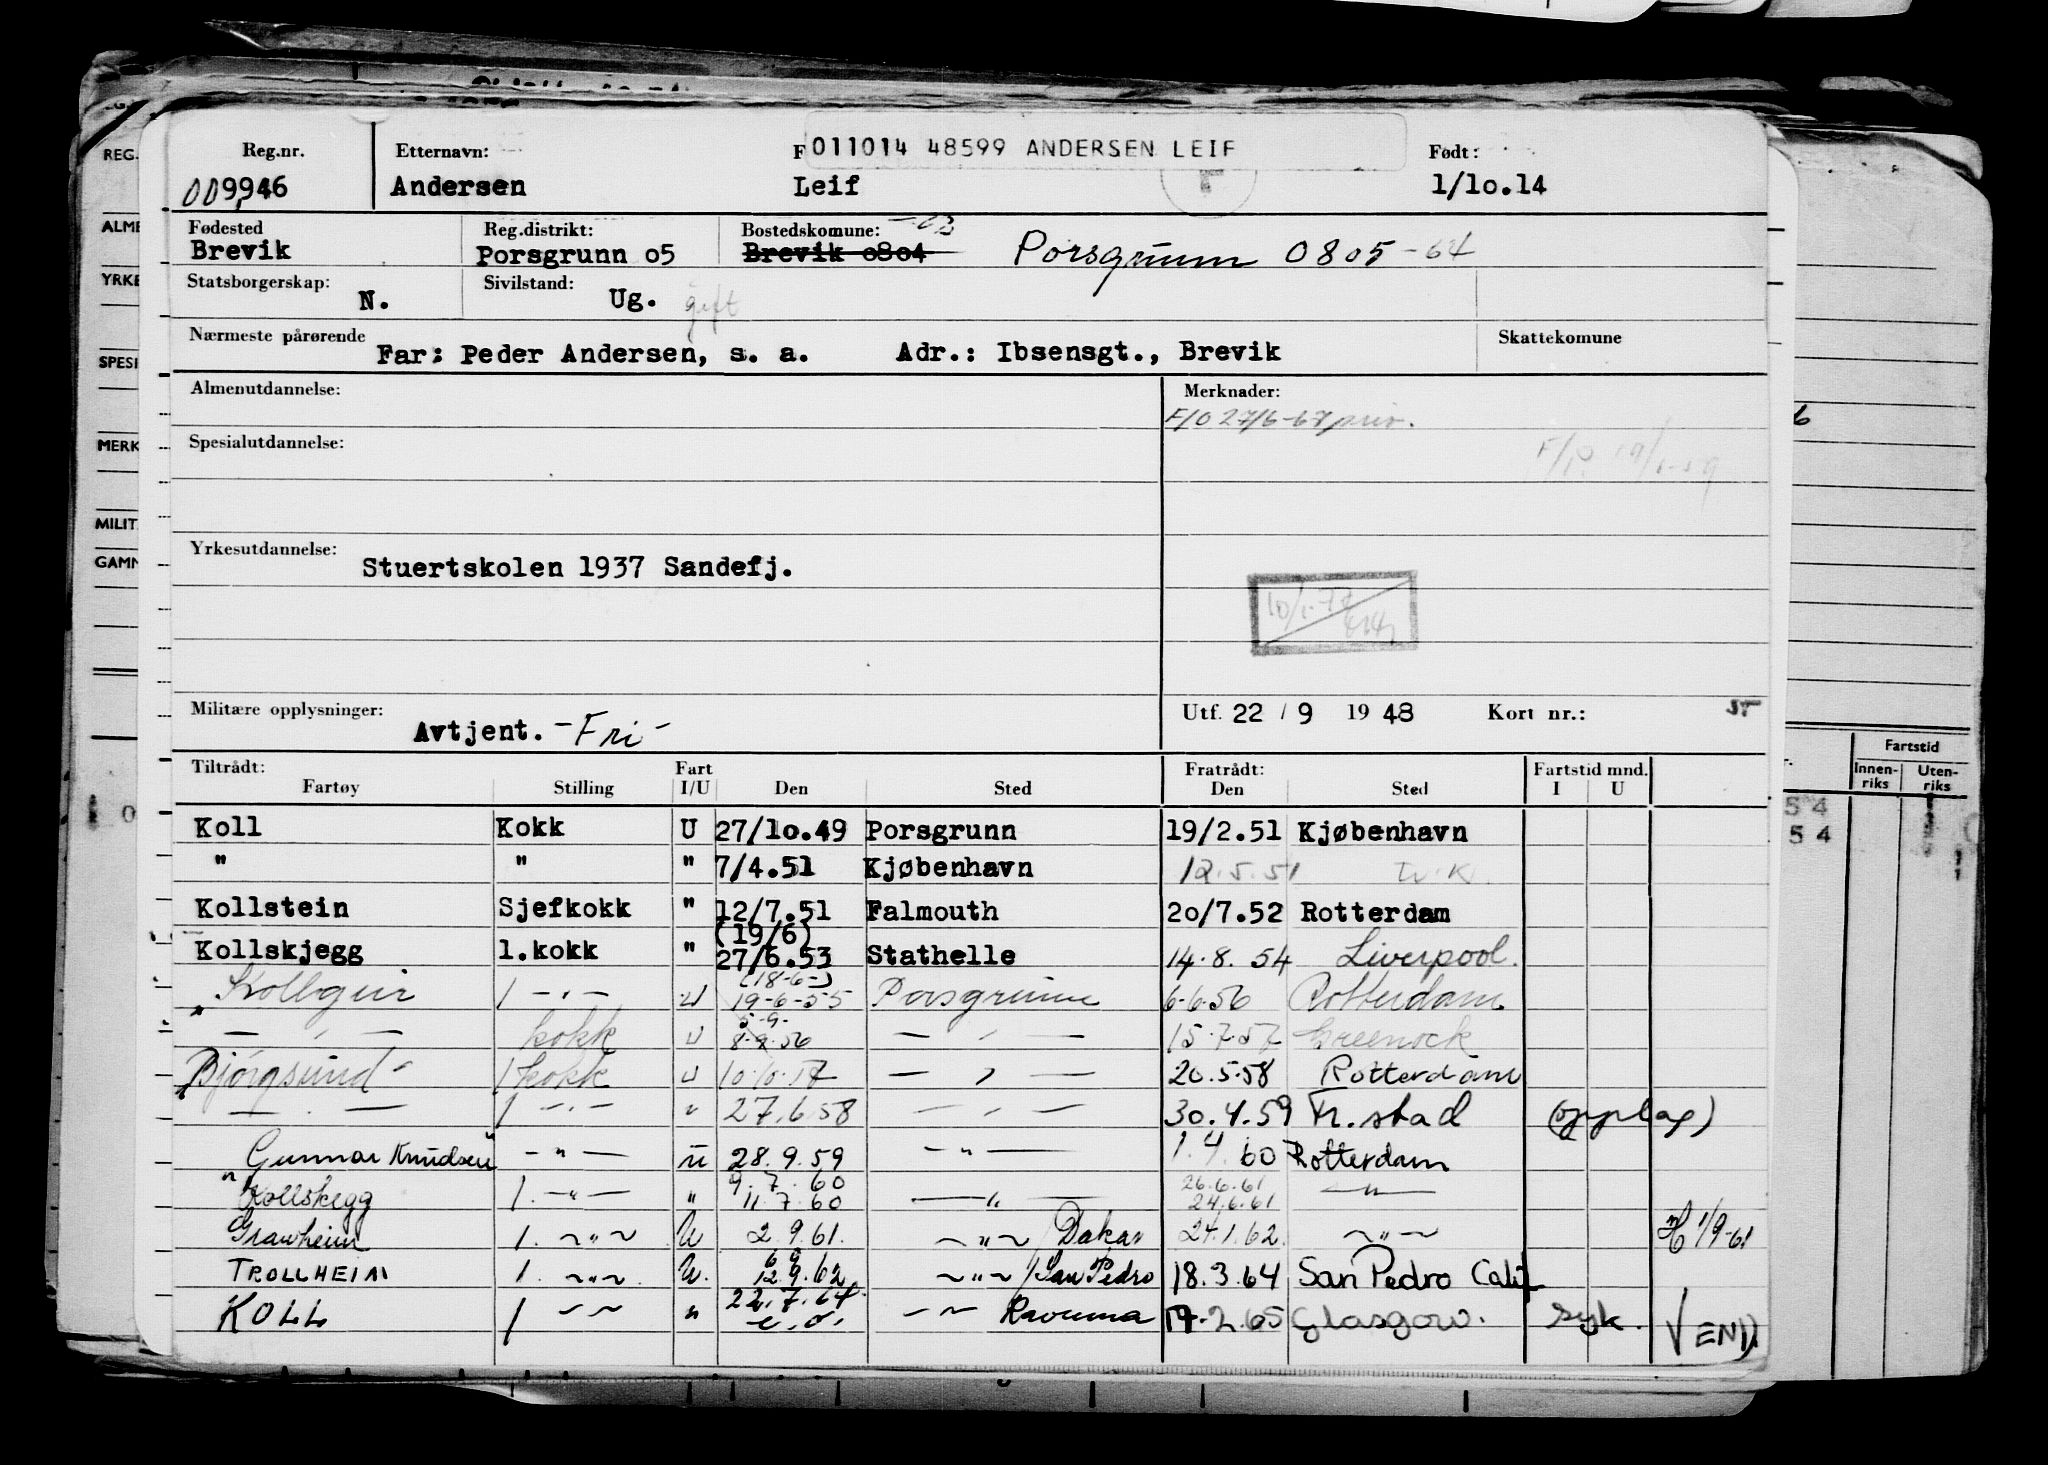 011014 48599 ANDERSEN LEIF
Reg.nr. Etternavn: F Født:
009946 Andersen Leif 1/10.14
Fødested Reg.distrikt: Bostedskomune:
Brevik Porsgrunn 05 Brevik 0804 Porsgrunn 0805-64
Statsborgerskap: N. Sivilstand: Ug. gift
Nærmeste pårørende Far: Peder Andersen, s. a. Adr.: Ibsensgt., Brevik Skattekomune
Almenutdannelse: Merknader:
F/O 27/6-67 priv.
Spesialutdannelse: 19/1-59
Yrkesutdannelse: Stuertskolen 1937 Sandefj.
Militære opplysninger: Avtjent. -Fri- Utf. 22 / 9 19 48 Kort nr.:
Tiltrådt: Fart Fratrådt: Fartstid mnd.
Fartøy Stilling I/U Den Sted Den Sted I U
Koll Kokk U 27/10.49 Porsgrunn 19/2.51 Kjøbenhavn
" " " 7/4.51 Kjøbenhavn 12.5.51
Kollstein Sjefkokk " 12/7.51 Falmouth 20/7.52 Rotterdam
(19/6)
Kollskjegg 1.kokk " 27/6.53 Stathelle 14.8.54 Liverpool.
(18-6-)
Kollbgeir 1 -"- U 19-6-55 Porsgrunn 6-6.56 Rotterdam
5-9-
-"- kokk U 8-9.56 -"- 15.7.57 Greenock
"Bjørgsund" 1 kokk U 10.10.57 -"- 20.5.58 Rotterdam
-"- 1 -"- " 27.6.58 -"- 30.4.59 Fr.stad (opplag)
Gunnar Knudsen -"- U 28.9.59 -"- 1.4.60 Rotterdam
9.7.60 26.6.61
"Kollskegg 1. -"- " 11.7.60 -"- 24.6.61 -"-
Granheim 1. -"- U 2.9.61. -"- / Dakar 24.1.62. -"- 1/9-61
TROLLHEIM 1. -"- U. 12.9.62 -"- / San Pedro 18.3.64 San Pedro Calif
22.7.64
KOLL 1 -"- " -"- Ravenna 17.2.65 Glasgow. syk. VEND
REG.
ALME
YRKE
SPESI
MERK
MILIT.
GAMM
Fartstid
Innenriks Utenriks
54
54